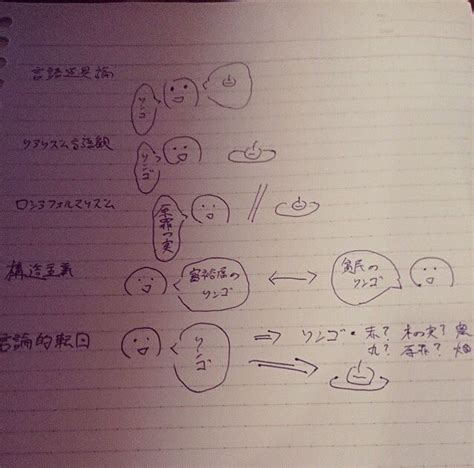 言語道具論
リンゴ
リアリズム言語観
リンゴ
ロシアフォルマリズム
原罪の実
構造主義
富裕層の
リンゴ
貧民の
リンゴ
言論的転回
リンゴ
⇒ リンゴ・赤? 木の実? 果
丸? 原罪?